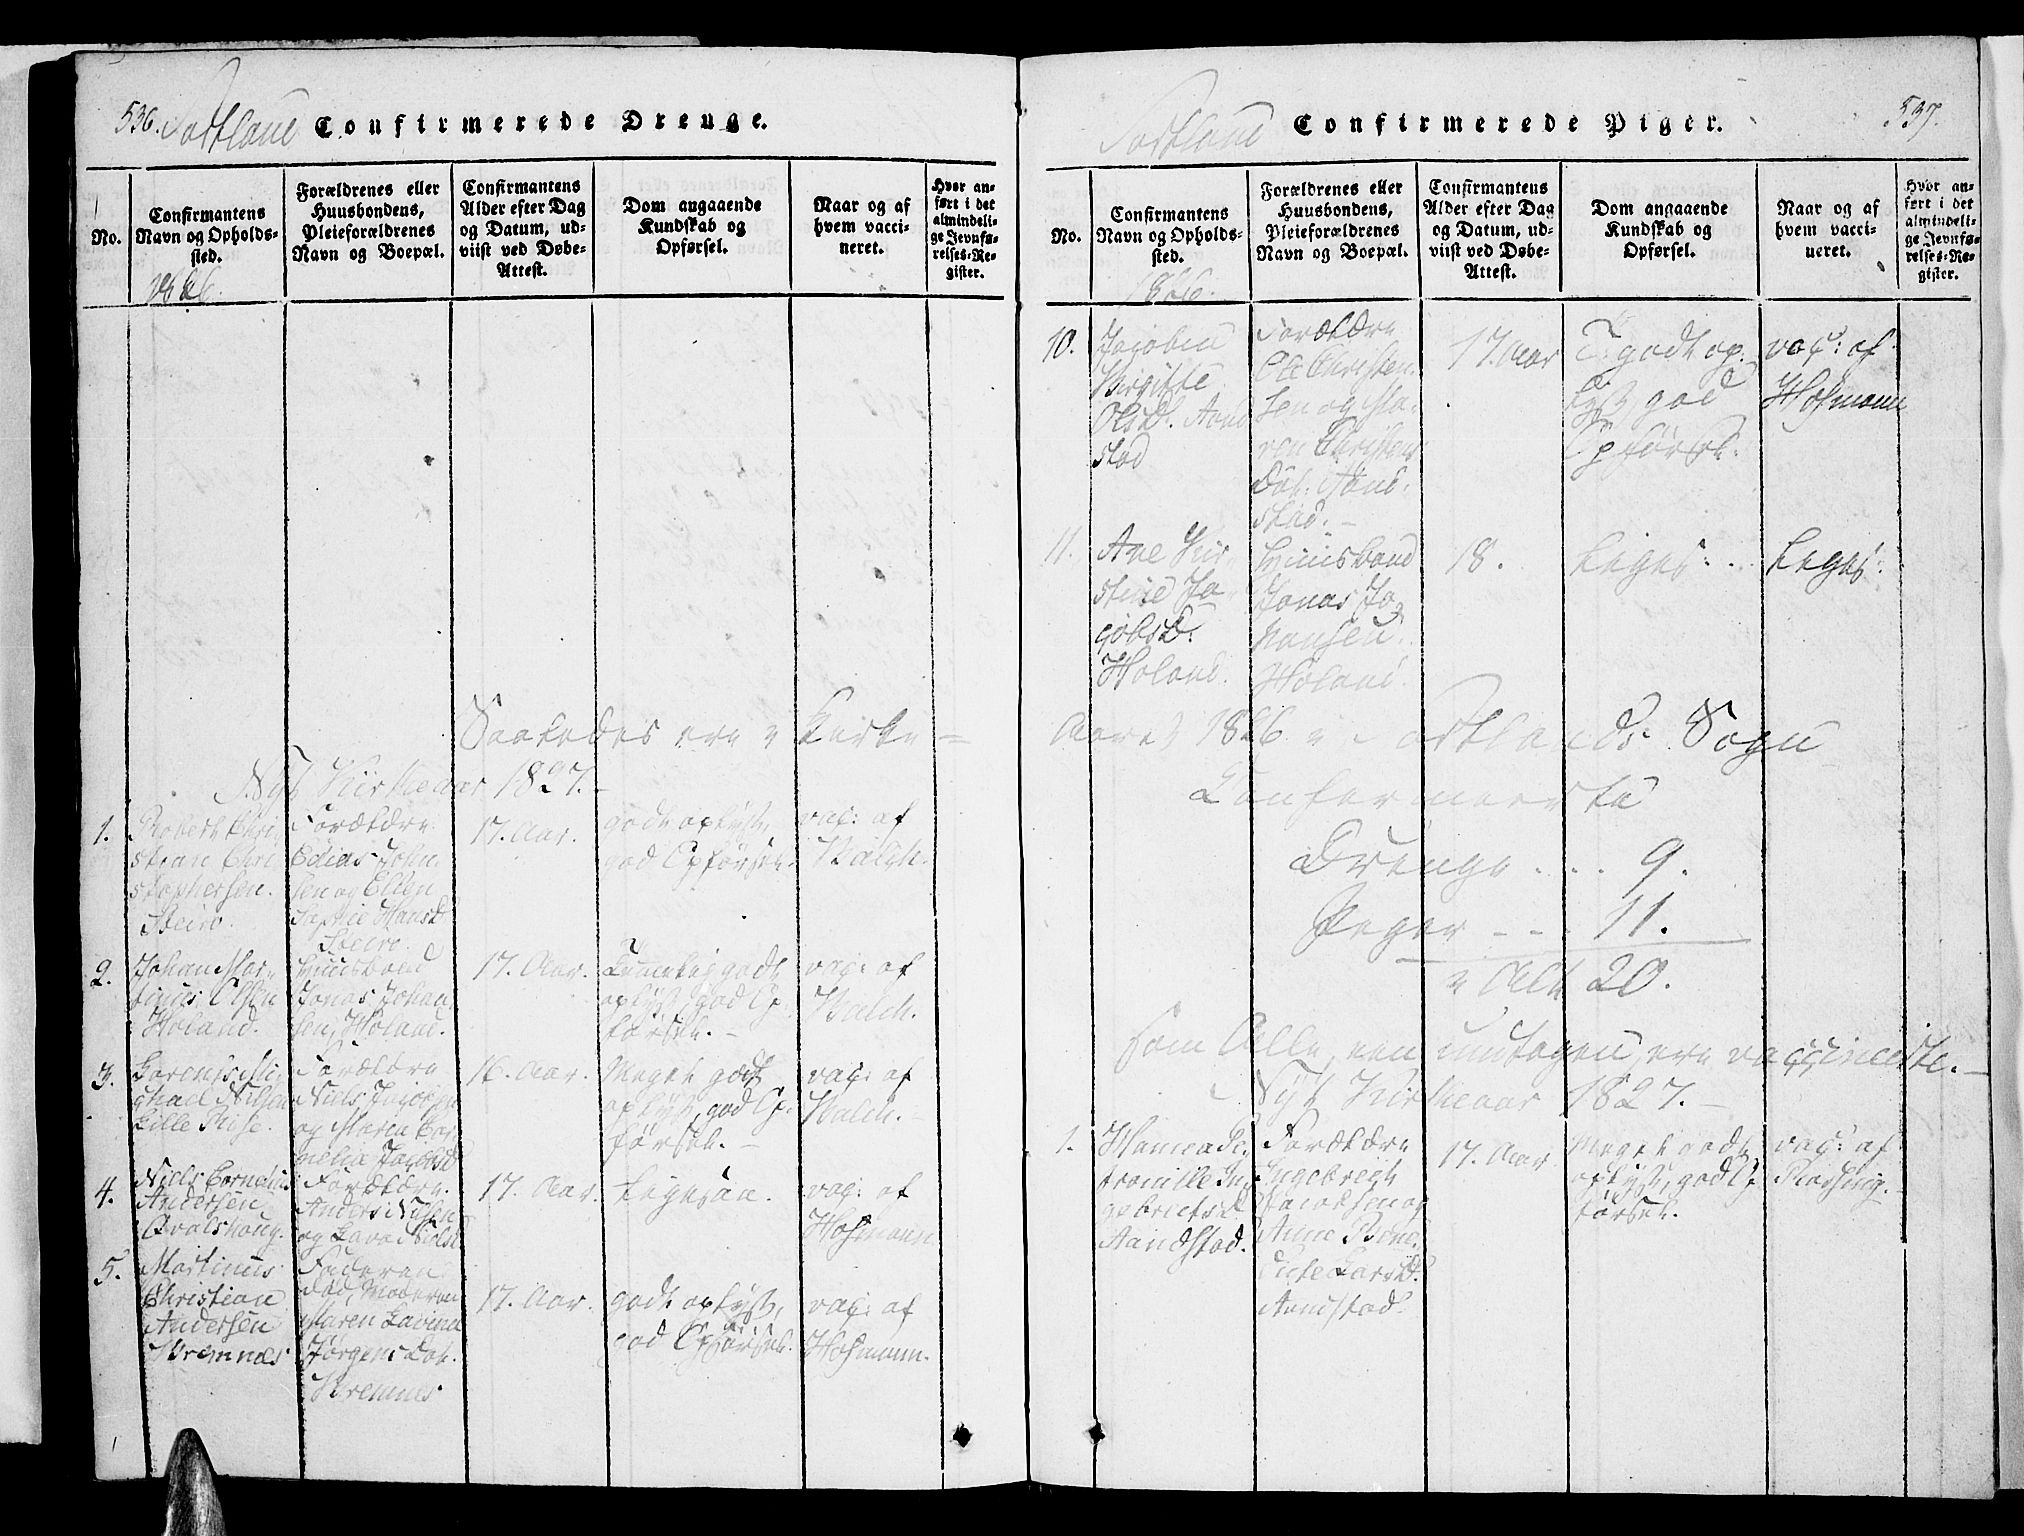 536. Sortland Confirmerede Drenge.
No.
Confirmantens
Navn og Opholds-
sted.
1826.
Forældrenes eller
Huusbondens,
Pleieforældrenes
Navn og Boepæl.
Confirmantens
Alder efter Dag
og Datum, ud-
viist ved Døbe-
Attest.
Dom angaaende
Kundskab og
Opførsel.
Naar og af
hvem vacci-
neret.
Hvor an-
ført i det
almindeli-
ge Jevnfø-
relses-Re-
gister.
Saaledes ere i Kirke-
Nyt Kirkeaar 1827.
1.
Robert Chri-
stian Chri-
stophersen.
Steiro.
Forældre
Elias John-
sen og Ellen
Sophie Hansd
Steiro.
17. Aar.
godt oplyst,
god Opførsel.
vac: af
Walch.
2.
Johan Mar-
tinus Olsen
Holand.
Huusbond
Jonas Johan-
sen, Holand.
17. Aar.
Temmelig godt
oplyst, god Op-
førsel. –
vac: af
Walch.
3.
Lorents Mi-
chael Nilsen
Lille Rise.
Forældre
Niels Jacobsen
og Maren Cor-
nelia Jacobsd
16. Aar.
Meget godt
oplyst, god Op-
førsel. –
vac: af
Walch. –
4.
Niels Cornelius
Andersen
Qvalshoug.
Forældre
Anders Nilsen
og Lava Nielsd
17. Aar.
Ligesaa.
vac: af
Hofmann
5.
Martinus
Christian
Andersen
Kremnæs
Faderen
død, Moderen
Maren Lavina
Jørgens Dat.
Kremnæs
17. Aar.
godt oplyst,
god Opførsel.
vac: af
Hofmann.
Sortland Confirmerede Piger. 537.
No.
Confirmantens
Navn og Opholds-
sted.
1826.
Forældrenes eller
Huusbondens,
Pleieforældrenes
Navn og Boepæl.
Confirmantens
Alder efter Dag
og Datum, ud-
viist ved Døbe-
Attest.
Dom angaaende
Kundskab og
Opførsel.
Naar og af
hvem vacci-
neret.
Hvor an-
ført i det
almindeli-
ge Jevnfø-
relses-Re-
gister.
10.
Jacobin
Birgitte
Olsd. Aand
stad
Forældre
Ole Christen-
sen og Ma-
ren Christens
Dat: Aand-
stad. –
17. Aar
T. godt op-
lyst, god
Opførsel.
vac: af
Hofmann
11.
Ane Kir-
stine Ja-
cobsd.
Holand.
Huusbond
Jonas Jo-
hansen.
Holand.
18.
Liges: ..
Liges:
Aaret 1826 i Sortlands Sogn
Confermeerte
Drenge ... 9.
Peger --- 11.
i Alt 20.
som Alle, een undtagen, ere vaccineerte. –
Nyt Kirkeaar 1827. –
1.
Hanna Pe-
tronille In-
gebrietsd
Aandstad.
Forældre
Ingebregt
Jacobsen og
Anne Bene-
dicte Larsd.
Aandstad.
17. Aar
Meget godt
oplyst, god Op-
førsel.
vac: af